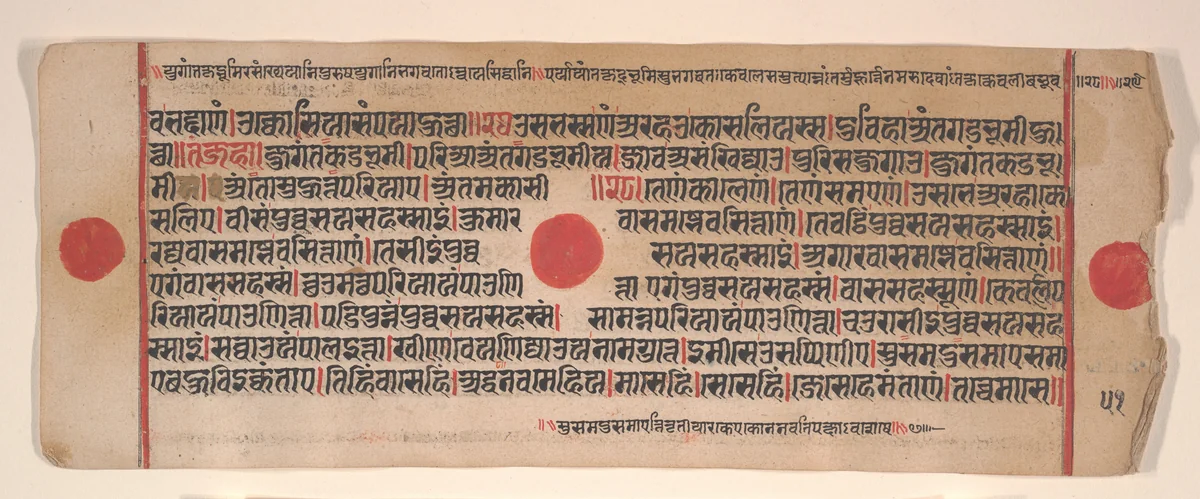 युगांतकृद्भूमिरसंख्यातानिपुरुषयुगानिभगवतोऽन्वयसिद्धानि॥पर्यायांतकृद्भूमिस्तुभगवतःकेवलेसमुत्पन्नेंतर्मुहूर्तेनमरुदेवांतकृत्केवलीबभूव
भद्दाणं।उक्कोसियासंपयाहुत्था॥२२६उसभस्सणंअरहओकोसलियस्स।दुविहाअंतगडभूमीहु
त्था॥तंजहा।जुगंतकडभूमी।परिआअंतगडभूमीय।जावअसंखिज्जाओ।पुरिसजुगाओ।जुगंतकडभू
मी।अंतोमुहुत्तपरियाए।अंतमकासी॥२२७।तेणंकालेणं।तेणंसमएणं।उसभेअरहाको
सलिए।वीसंपुव्वसयसहस्साइं।कुमारवासमज्झेवसित्ताणं।तेवट्ठिंपुव्वसयसहस्साइं।
रज्जवासमज्झेवसित्ताणं।तेसीइंपुव्वसयसहस्साइं।अगारवासमज्झेवसित्ताणं॥
एगंवाससहस्सं।छउमत्थपरियायंपाउणित्ताएगंपुव्वसयसहस्सं।वाससहस्सूणं।केवलिप
रियायंपाउणित्ता।पडिपुन्नंपुव्वसयसहस्सं।सामन्नपरियायंपाउणित्ता।चउरासीइंपुव्वसयसह
स्साइं।सव्वाउयंपालइत्ता।खीणेवेयणिज्जाउयनामगुत्ते।इमीसेउसप्पिणीए।सुसमदुसमाएसमा
एबहुविइक्कंताए।तिहिंवासेहिं।अद्धनवमेहिय।मासेहिं।सेसेहिं।जेसेहेमंताणं।तच्चेमासे॥
५१
॥सुसमदुसमाएत्तितृतीयारकेएकोननवतिपक्षावशेषे॥